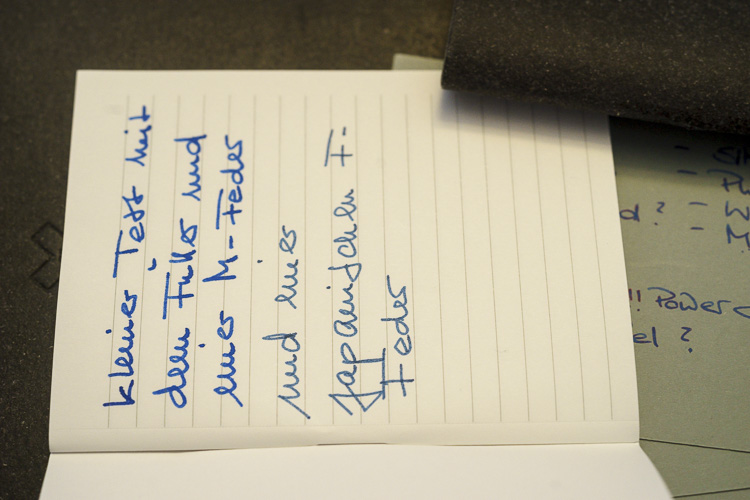 kleiner Test mit
dem Füller und
einer M-Feder
und einer
Japanischen F-
Feder
!! Power